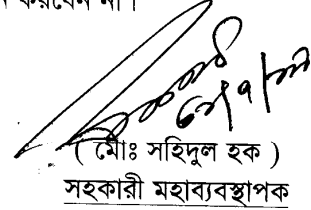 করবেন না।
( মোঃ সহিদুল হক )
সহকারী মহাব্যবস্থাপক